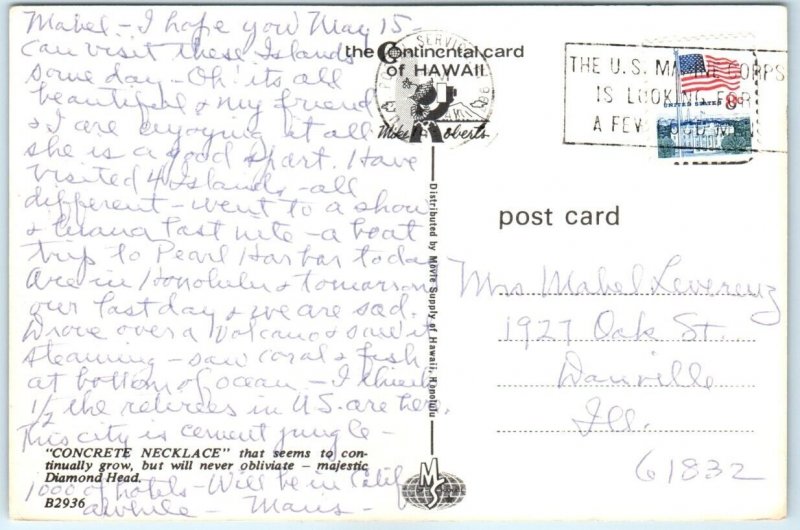 Mabel - I hope you May 15
Can visit these Islands
some day - Oh! its all
beautiful & my friend
& I are enjoying it all
she is a good sport. Have
visited 4 Islands - all
different - went to a show
& luau last nite - a boat
trip to Pearl Harbor today
are in Honolulu & tomorrow
our last day & we are sad.
Drove over a Volcano & saw it
steaming - saw coral & fish
at bottom of ocean - I think
1/2 the retirees in U.S. are here.
This city is cement jungle -
"CONCRETE NECKLACE" that seems to con-
tinually grow, but will never obliviate - majestic
Diamond Head.
1000 of hotels - Will be in Calif
B2936
awhile -
the Continental card
of HAWAII
Mike Roberts
Distributed by Movie Supply of Hawaii, Honolulu
MS
THE U.S. MARINE CORPS
IS LOOKING FOR
A FEW GOOD MEN
UNITED STATES 8c
post card
Mrs Mabel Leverenz
1927 Oak St.
Danville
Ill.
61832